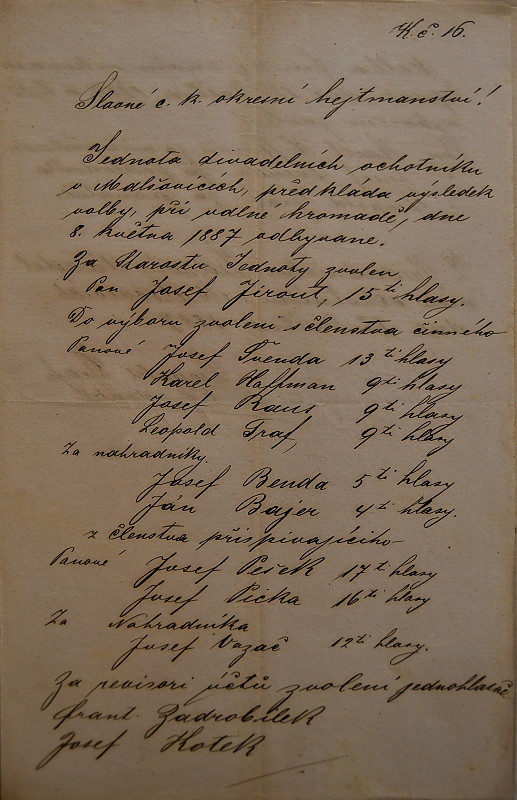 K. č. 16.
Slavné c. k. okresní hejtmanství!
Jednota divadelních ochotníku
v Malšovicích, předkláda výsledek
volby, při valné hromadě, dne
8. května 1887 odbyvane.
Za Starostu Jednoty zvolen
Pan Josef Jirout, 15ti hlasy.
Do výboru zvoleni s členstva činného
Panové Josef Švenda 13ti hlasy
Karel Hoffman 9ti hlasy
Josef Raus 9ti hlasy
Leopold Graf, 9ti hlasy
Za nahradníky
Josef Benda 5ti hlasy
Ján Bajer 4ti hlasy.
z členstva přispivajícího
Panové Josef Pešek 17ti hlasy
Josef Pička 16ti hlasy
Za Nahradníka
Josef Vozač 12ti hlasy.
Za revisori účtů zvolení jednohlasně
Frant. Zadrobílek
Josef Kotek